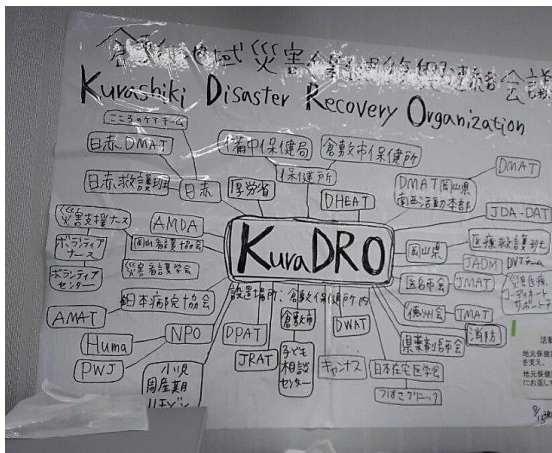 倉敷地域災害保健復興連絡会議
Kurashiki Disaster Recovery Organization
こころのケアチーム
日赤DMAT
日赤救護班
日赤
備中保健局
倉敷市保健所
保健所
厚労省
DHEAT
DMAT岡山県
南西活動本部
DMAT
JDA-DAT
災害支援ナース
ボランティア
ナース
ボランティア
センター
AMDA
岡山県看護協会
災害看護学会
KuraDRO
岡山県
医療救護班
JADM
DVTチーム
医師会
JMAT
コーディネート
サポート
徳洲会
TMAT
消防
県薬剤師会
設置場所:倉敷保健所内
全日本病院協会
AMAT
NPO
Huma
PWJ
小児
周産期
リエゾン
DPAT
JRAT
倉敷市
子ども
相談
センター
DWAT
キャンナス
日本在宅医学会
つばさクリニック